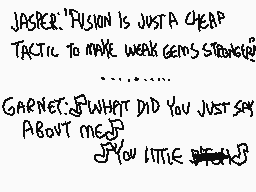 JASPER: "FUSION IS JUST A CHEAP
TACTIC TO MAKE WEAK GEMS STRONGER"
..........
GARNET: ♫WHAT DID YOU JUST SAY
ABOUT ME♫
♫YOU LITTLE ♫